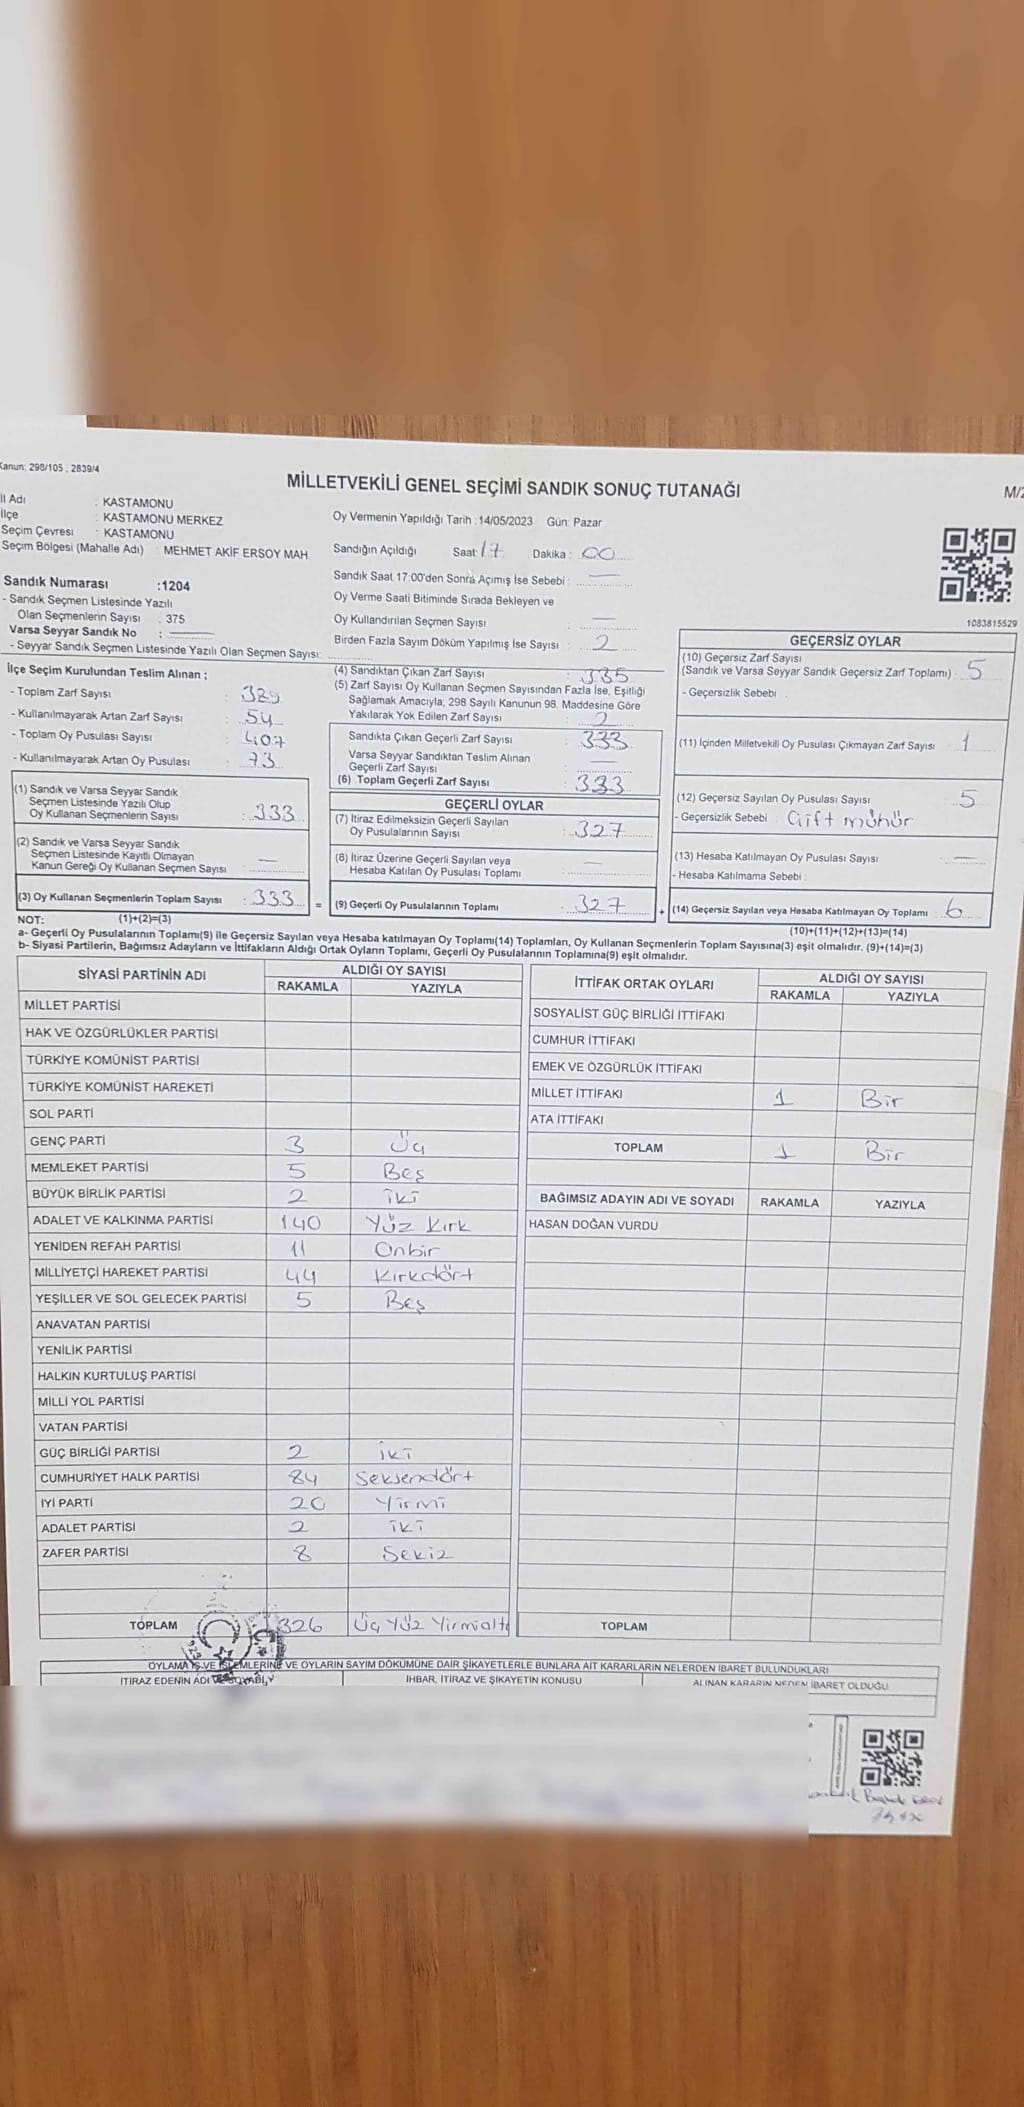 Kanun: 298/105 , 2839/4
MİLLETVEKİLİ GENEL SEÇİMİ SANDIK SONUÇ TUTANAĞI
İl Adı : KASTAMONU
İlçe : KASTAMONU MERKEZ
Seçim Çevresi : KASTAMONU
Seçim Bölgesi (Mahalle Adı) : MEHMET AKİF ERSOY MAH.
Sandık Numarası :1204
- Sandık Seçmen Listesinde Yazılı
Olan Seçmenlerin Sayısı : 375
Varsa Seyyar Sandık No :
- Seyyar Sandık Seçmen Listesinde Yazılı Olan Seçmen Sayısı:
Oy Vermenin Yapıldığı Tarih :14/05/2023 Gün: Pazar
Sandığın Açıldığı Saat: 17 Dakika : 00
Sandık Saat 17:00'den Sonra Açımış İse Sebebi : —
Oy Verme Saati Bitiminde Sırada Bekleyen ve
Oy Kullandırılan Seçmen Sayısı : —
Birden Fazla Sayım Döküm Yapılmış İse Sayısı : 2
1083815529
İlçe Seçim Kurulundan Teslim Alınan ;
- Toplam Zarf Sayısı : 389
- Kullanılmayarak Artan Zarf Sayısı : 54
- Toplam Oy Pusulası Sayısı : 407
- Kullanılmayarak Artan Oy Pusulası : 73
(1) Sandık ve Varsa Seyyar Sandık
Seçmen Listesinde Yazılı Olup
Oy Kullanan Seçmenlerin Sayısı : 333
(2) Sandık ve Varsa Seyyar Sandık
Seçmen Listesinde Kayıtlı Olmayan
Kanun Gereği Oy Kullanan Seçmen Sayısı : —
(3) Oy Kullanan Seçmenlerin Toplam Sayısı : 333 =
(1)+(2)=(3)
(4) Sandıktan Çıkan Zarf Sayısı : 335
(5) Zarf Sayısı Oy Kullanan Seçmen Sayısından Fazla İse, Eşitliği
Sağlamak Amacıyla, 298 Sayılı Kanunun 98. Maddesine Göre
Yakılarak Yok Edilen Zarf Sayısı : 2
Sandıkta Çıkan Geçerli Zarf Sayısı : 333
Varsa Seyyar Sandıktan Teslim Alınan
Geçerli Zarf Sayısı : —
(6) Toplam Geçerli Zarf Sayısı : 333
GEÇERLİ OYLAR
(7) İtiraz Edilmeksizin Geçerli Sayılan
Oy Pusulalarının Sayısı : 327
(8) İtiraz Üzerine Geçerli Sayılan veya
Hesaba Katılan Oy Pusulası Toplamı : —
(9) Geçerli Oy Pusulalarının Toplamı : 327 +
GEÇERSİZ OYLAR
(10) Geçersiz Zarf Sayısı
(Sandık ve Varsa Seyyar Sandık Geçersiz Zarf Toplamı) : 5
- Geçersizlik Sebebi :
(11) İçinden Milletvekili Oy Pusulası Çıkmayan Zarf Sayısı : 1
(12) Geçersiz Sayılan Oy Pusulası Sayısı : 5
- Geçersizlik Sebebi : Çift mühür
(13) Hesaba Katılmayan Oy Pusulası Sayısı : —
- Hesaba Katılmama Sebebi :
(14) Geçersiz Sayılan veya Hesaba Katılmayan Oy Toplamı : 6
(10)+(11)+(12)+(13)=(14)
NOT:
a- Geçerli Oy Pusulalarının Toplamı(9) ile Geçersiz Sayılan veya Hesaba katılmayan Oy Toplamı(14) Toplamları, Oy Kullanan Seçmenlerin Toplam Sayısına(3) eşit olmalıdır. (9)+(14)=(3)
b- Siyasi Partilerin, Bağımsız Adayların ve İttifakların Aldığı Ortak Oyların Toplamı, Geçerli Oy Pusulalarının Toplamına(9) eşit olmalıdır.
SİYASİ PARTİNİN ADI ALDIĞI OY SAYISI
RAKAMLA YAZIYLA
MİLLET PARTİSİ
HAK VE ÖZGÜRLÜKLER PARTİSİ
TÜRKİYE KOMÜNİST PARTİSİ
TÜRKİYE KOMÜNİST HAREKETİ
SOL PARTİ
GENÇ PARTİ 3 Üç
MEMLEKET PARTİSİ 5 Beş
BÜYÜK BİRLİK PARTİSİ 2 iki
ADALET VE KALKINMA PARTİSİ 140 Yüz Kırk
YENİDEN REFAH PARTİSİ 11 Onbir
MİLLİYETÇİ HAREKET PARTİSİ 44 Kırkdört
YEŞİLLER VE SOL GELECEK PARTİSİ 5 Beş
ANAVATAN PARTİSİ
YENİLİK PARTİSİ
HALKIN KURTULUŞ PARTİSİ
MİLLİ YOL PARTİSİ
VATAN PARTİSİ
GÜÇ BİRLİĞİ PARTİSİ 2 iki
CUMHURİYET HALK PARTİSİ 84 Seksendört
İYİ PARTİ 20 Yirmi
ADALET PARTİSİ 2 iki
ZAFER PARTİSİ 8 Sekiz
TOPLAM 326 Üç Yüz Yirmialtı
İTTİFAK ORTAK OYLARI ALDIĞI OY SAYISI
RAKAMLA YAZIYLA
SOSYALİST GÜÇ BİRLİĞİ İTTİFAKI
CUMHUR İTTİFAKI
EMEK VE ÖZGÜRLÜK İTTİFAKI
MİLLET İTTİFAKI 1 Bir
ATA İTTİFAKI
TOPLAM 1 Bir
BAĞIMSIZ ADAYIN ADI VE SOYADI RAKAMLA YAZIYLA
HASAN DOĞAN VURDU
TOPLAM
OYLAMA İŞ VE İŞLEMLERİNE VE OYLARIN SAYIM DÖKÜMÜNE DAİR ŞİKAYETLERLE BUNLARA AİT KARARLARIN NELERDEN İBARET BULUNDUKLARI
İTİRAZ EDENİN ADI VE SOYADI İHBAR, İTİRAZ VE ŞİKAYETİN KONUSU ALINAN KARARIN NEDEN İBARET OLDUĞU